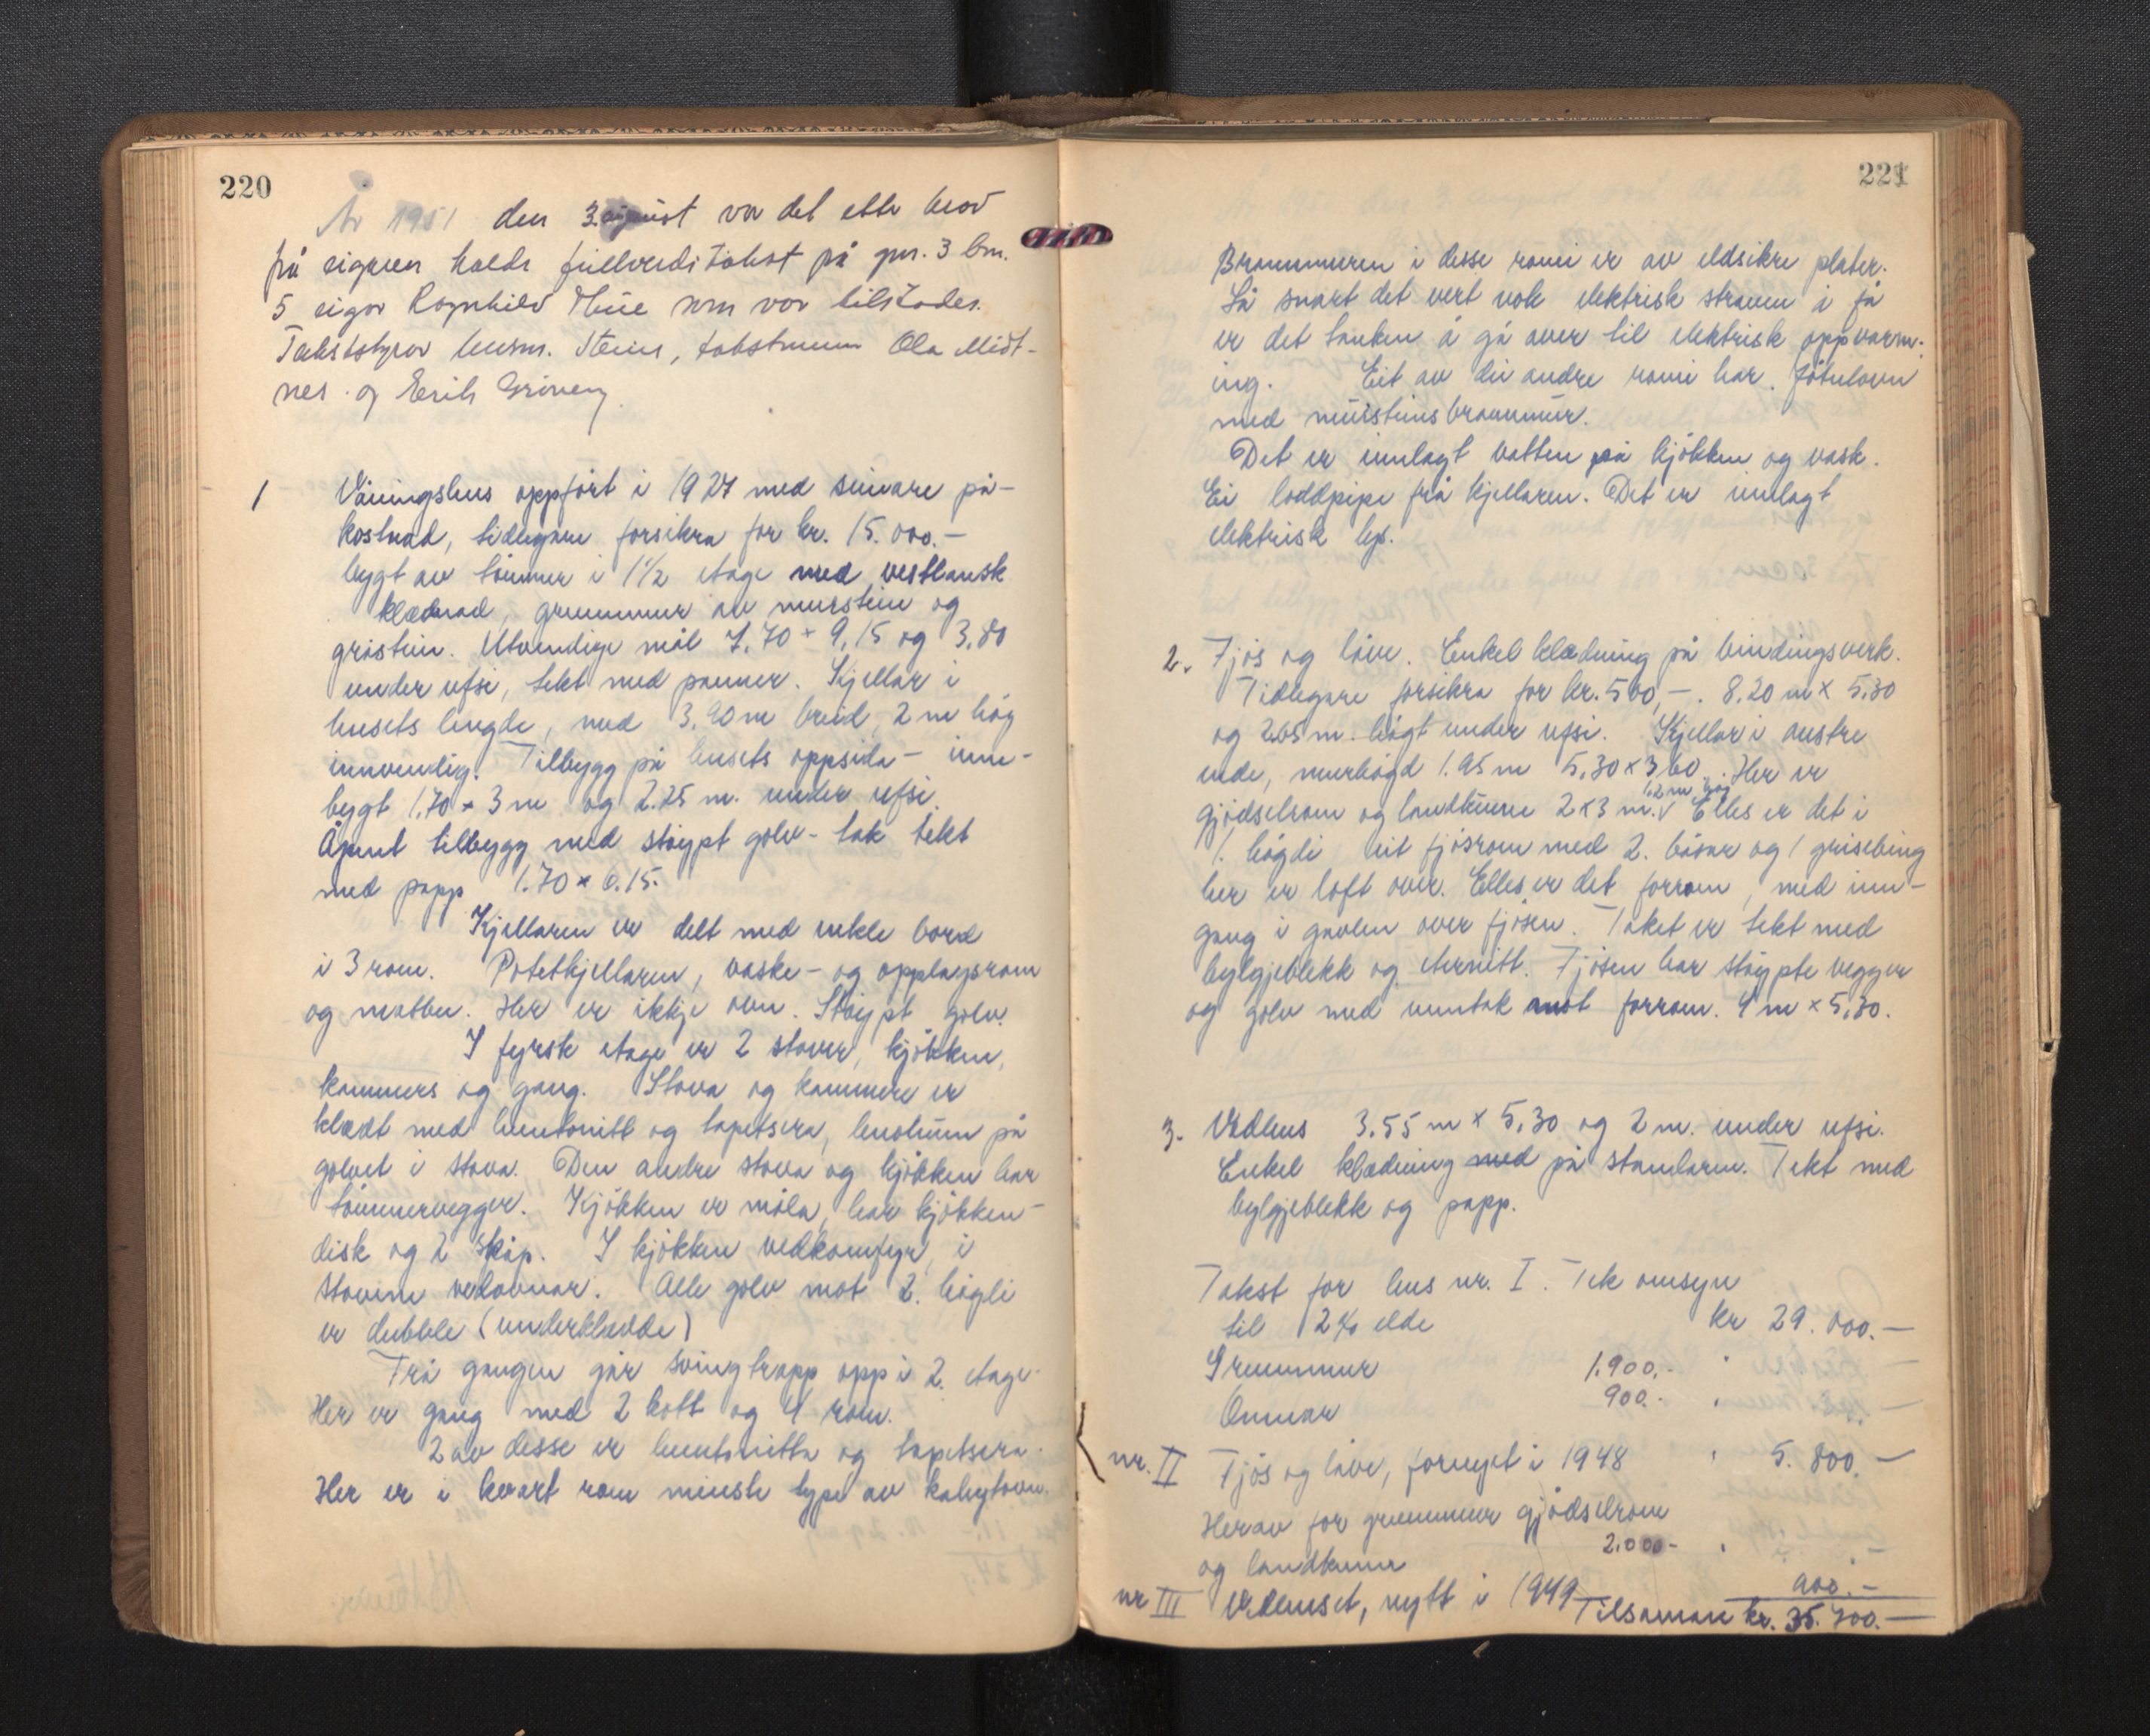 220
År 1951 den 3. august var det etter krav
frå eigaren halde fullverditakst på gnr. 3 bnr.
5 eigar Ragnhild Hüe som var tilstades.
Takststyrar lensm. Steine, takstmenn Ola Midt-
nes og Eirik Griveng
1 Våningshus oppført i 1927 med seinare på-
kostnad, tidlegare forsikra for kr. 15.000.-
bygt av tømmer i 1 1/2 etage med vestlansk
klædnad, grunnmur av murstein og
gråstein. Utvendige mål 7.70 × 9,15 og 3,80
under ufsi, tekt med panner. Kjellar i
husets lengde, med 3.90 m breid, 2 m høg
innvendig. Tilbygg på husets oppsida - inne-
bygt 1,70 × 3 m og 2.25 m. under ufsi.
Åpent tilbygg med støypt golv - tak tekt
med papp 1.70 × 6.15.
Kjellaren er delt med enkle bord
i 3 rom. Potetkjellaren, vaske- og opplagsrom
og matbu. Her er ikkje omn. Støypt golv.
I fyrsk etage er 2 stover, kjøkken,
kammers og gang. Stova og kammere er
klædt med huntonitt og tapetsera, linoleum på
golvet i stova. Den andre stova og kjøkken har
tømmervegger. Kjøkken er måla, har kjøkken-
disk og 2 skåp. I kjøkken vedkomfyr, i
stovene vedomnar. Alle golv mot 2. høgdi
er dubble (underklædde)
Frå gangen går svingtrapp opp i 2. etage.
Her er gang med 2 kott og 4 rom.
2 av desse er huntonitta og tapetsera.
Her er i kvart rom minste type av kabytovn.
221
Brannmuren i desse romi er av eldsikre plater.
Så snart det vert nok elektrisk straum i få
er det tanken å gå over til elektrisk oppvarm-
ing. Eit av dei andre romi har Jøtulovn
med mursteinsbrannmur.
Det er innlagt vatten på kjøkken og vask.
Ei loddpipe frå kjellaren. Det er innlagt
elektrisk lys.
2. Fjøs og løve. Enkel klædning på bindingsverk.
Tidlegare forsikra for kr. 500,-. 8.20 m × 5,30
og 2.65 m. høgt under ufsi. Kjellar i austre
ende, murhøgd 1.95 m 5,30 × 3,60. Her er
gjødselrom og landkume 2 × 3 m. 1,2 m høg Elles er det i
1. høgdi eit fjøsrom med 2. båsar og 1 grisebing
her er loft over. Elles er det forrom, med inn-
gang i gavlen over fjøsen. Taket er tekt med
bylgjeblekk og eternitt. Fjøsen har støypte vegger
og golv med unntak mot forrom. 4 m × 5,30.
3. Vedhus 3.55 m × 5,30 og 2 m. under ufsi.
Enkel klædning med på standarar. Tekt med
bylgjeblekk og papp.
Takst for hus nr. I. Tek omsyn
til 12% elde kr 29.000.-
Grunnmur 1.900.- "
Omnar 900.- "
nr. II Fjøs og løve, fornyet i 1948 " 5.800.-
Herav for grunnmur gjødselrom
og landkume 2.000- "
nr III Vedhuset, nytt i 1949 900.-
Tilsaman kr. 35.700.-